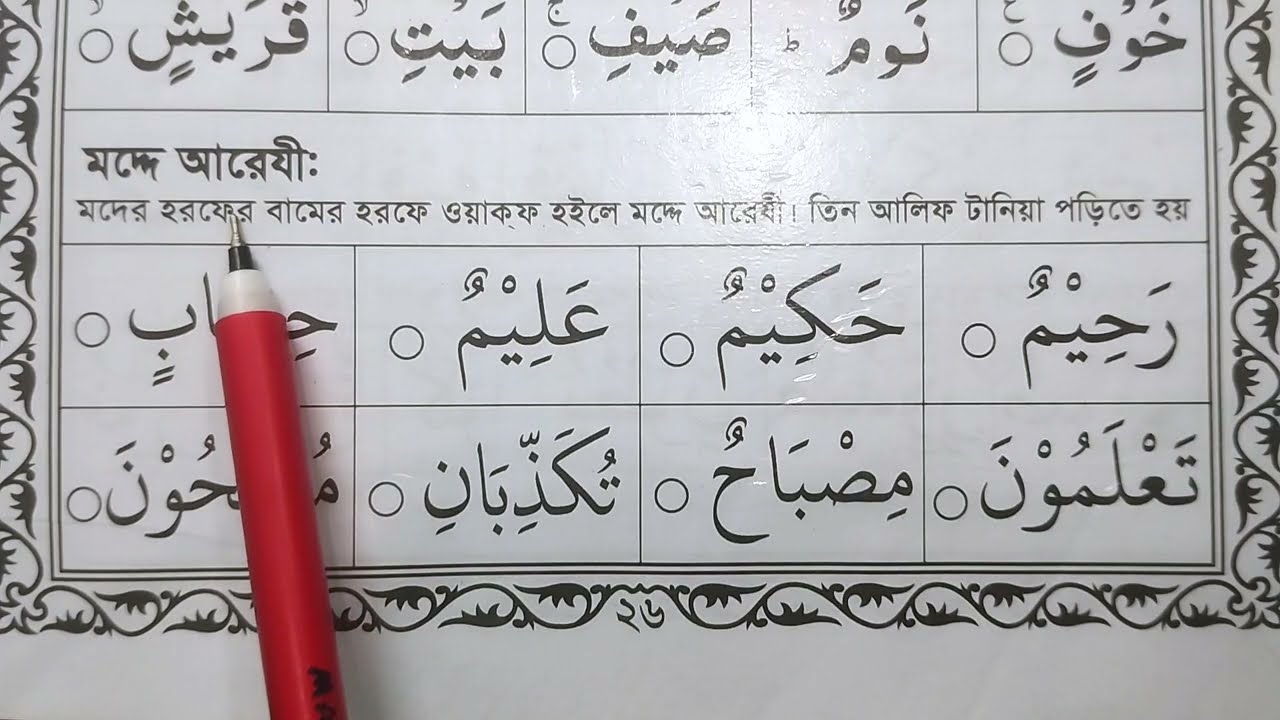 خَوْفٍ ○ نَوْمٌ ط صَيْفِ ○ بَيْتِ ○ قُرَيْشٍ ○
মদ্দে আরেযী:
মদের হরফের বামের হরফে ওয়াক্ফ হইলে মদ্দে আরেযী। তিন আলিফ টানিয়া পড়িতে হয়
رَحِيْمٌ ○ حَكِيْمٌ ○ عَلِيْمٌ ○
تَعْلَمُوْنَ ○ مِصْبَاحٌ ○ تُكَذِّبَانِ ○
২৬